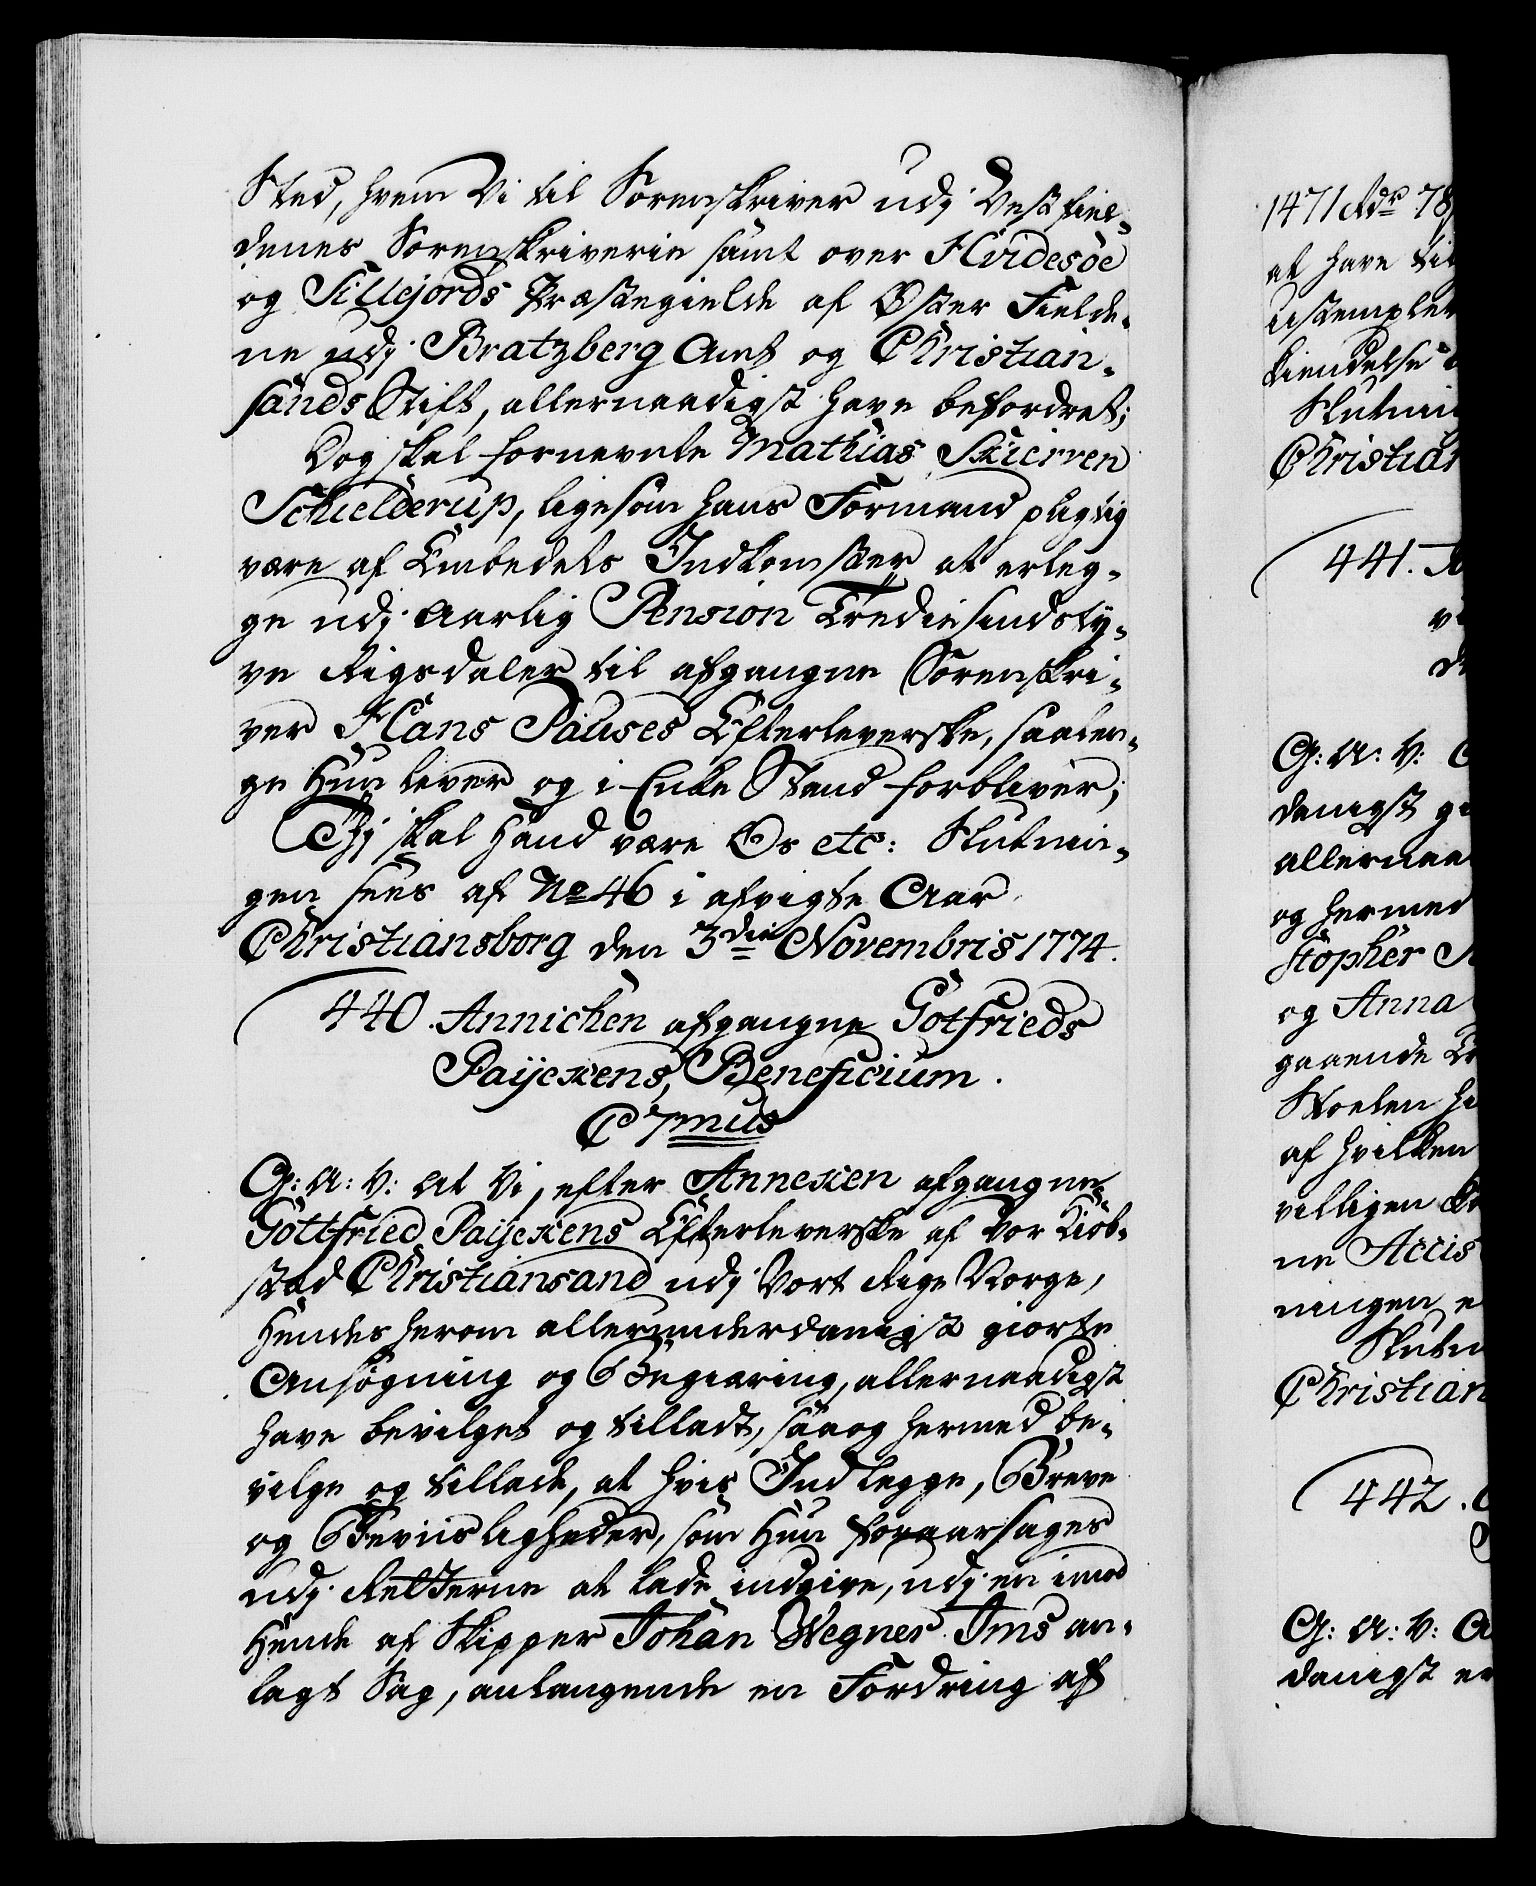 Sted, hvem Vi til Sorenskriver udj Vestfiel-
denes Sorenskriverie samt over Hvidesöe
og Sillejords Præstegielde af Øster Fielde-
ne udj Bratzberg Amt og Christian-
sands Stift, allernaadigst have befordret;
Dog skal fornevnte Mathias Skierven
Schielderup, ligesom hans Formand pligtig
være af Embedets Indkomster at erleg-
ge udj aarlig Pension Tredivesindsty-
ve Rigsdaler til afgangne Sorenskri-
ver Hans Pauses Efterleverske, saalen-
ge Hun lever og i Enke Stand forbliver;
Thj skal Hand være Os etc: Slutnin-
gen sees af No 46 i afvigte Aar
Christiansborg den 3die Novembris 1774.
440. Annichen afgangne Gotfrieds
Paÿckens, Beneficium.
C 7mus
G: A: V: At Vi, efter Anneken afgangne
Göttfried Paÿckens Efterleverske af Vor Kiöb-
stad Christiansand udj Vort Rige Norge,
Hendes herom allerunderdanigst giorte
Ansögning og Begiæring, allernaadigst
have bevilget og tilladt, saa og hermed be-
vilge og tillade, at hvis Indlegge, Breve
og Beviisligheder, som Hun foraarsages
udj Retterne at lade indgive, udj en imod
Hende af Skipper Johan Wegner Ims an-
lagt Sag, anlangende en Fordring af
1471 Rdr 78
at have til
ustemplet
kiendelse
Slutni
Christian
441.
G: A: V:
danigst
allernaa
og hermed
stopher
og Anna
gaaende
Skoelen
af hvilken
villigen
ne Accis
ningen
Slutn
Christian
442.
G: A: V:
danigst